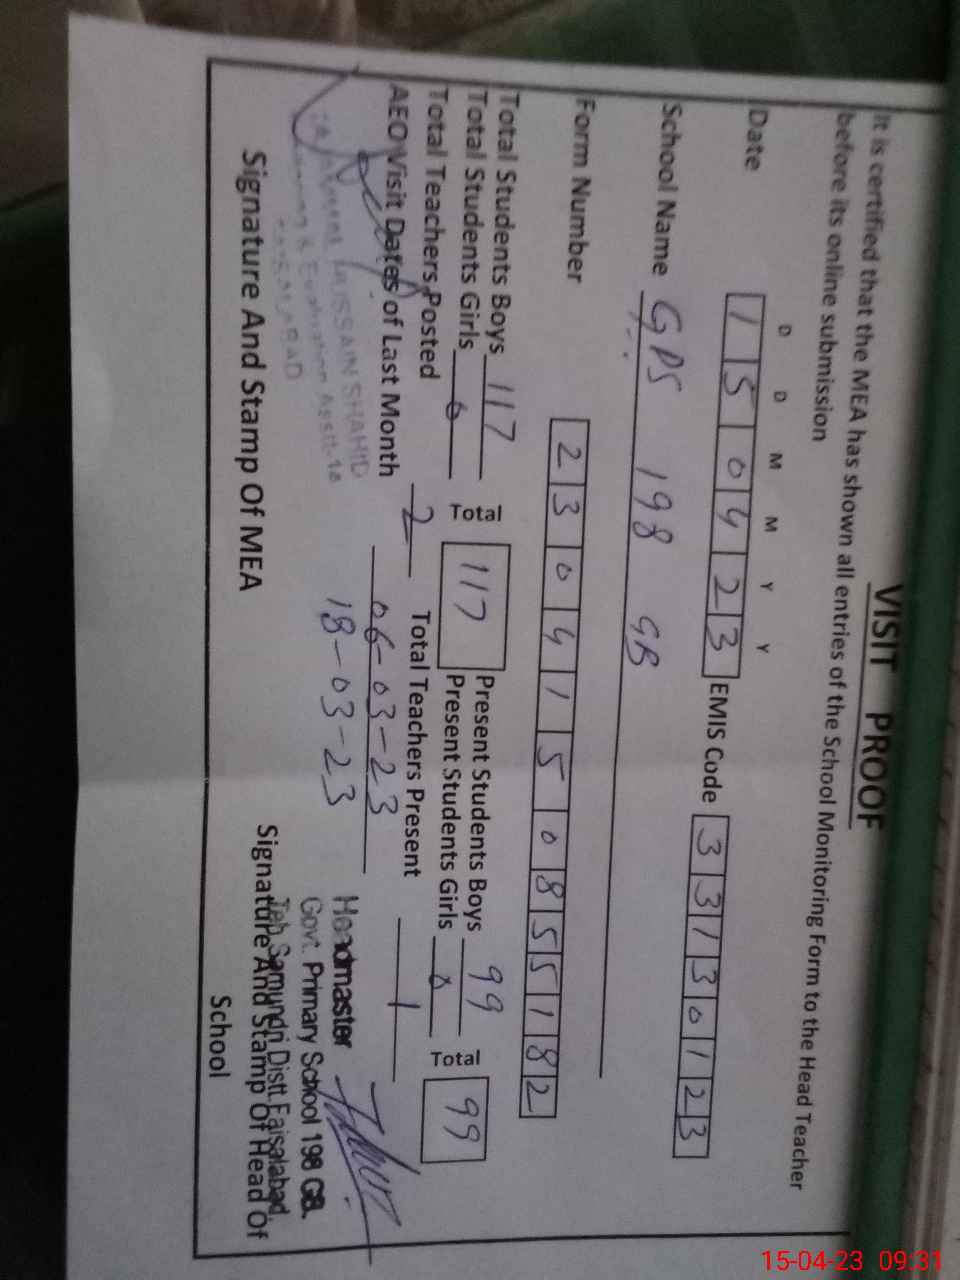 VISIT PROOF
It is certified that the MEA has shown all entries of the School Monitoring Form to the Head Teacher
before its online submission
D D M M Y Y
Date 1 5 0 4 2 3 EMIS Code 3 3 1 3 0 1 2 3
School Name GPS 198 GB
Form Number 2 3 0 4 1 5 0 8 5 5 1 8 2
Total Students Boys 117 Total 117 Present Students Boys 99 Total 99
Total Students Girls 0 Present Students Girls 0
Total Teachers Posted 2 Total Teachers Present 1
AEO Visit Dates of Last Month 06-03-23
18-03-23
HUSSAIN SHAHID
Headmaster
Govt. Primary School 198 GB.
Teh Samundri Distt. Faisalabad.
Signature And Stamp Of MEA
Signature And Stamp Of Head Of
School
15-04-23 09:31